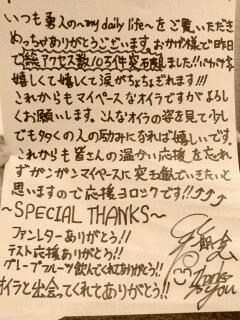 いつも勇人の~my daily life~をご覧いただき
めっちゃありがとうございます。おかげ様で昨日
で総アクセス数10万件突破致しました!!パカパカ
嬉しくて嬉しくて涙がちょちょぎれます!!!
これからもマイペースなオイラですがよろし
くお願いします。こんなオイラの姿を見て少し
でも多くの人の励みになれば嬉しいです。
これからも皆さんの温かい応援を忘れ
ずガンガンマイペースに突き進んでいきたいと
思いますので応援ヨロシクです!!
~SPECIAL THANKS~
ファンレターありがとう!!
テスト応援ありがとう!!
グレープフルーツ飲んでくれてありがとう!!
オイラと出会ってくれてありがとう!!
Thank you